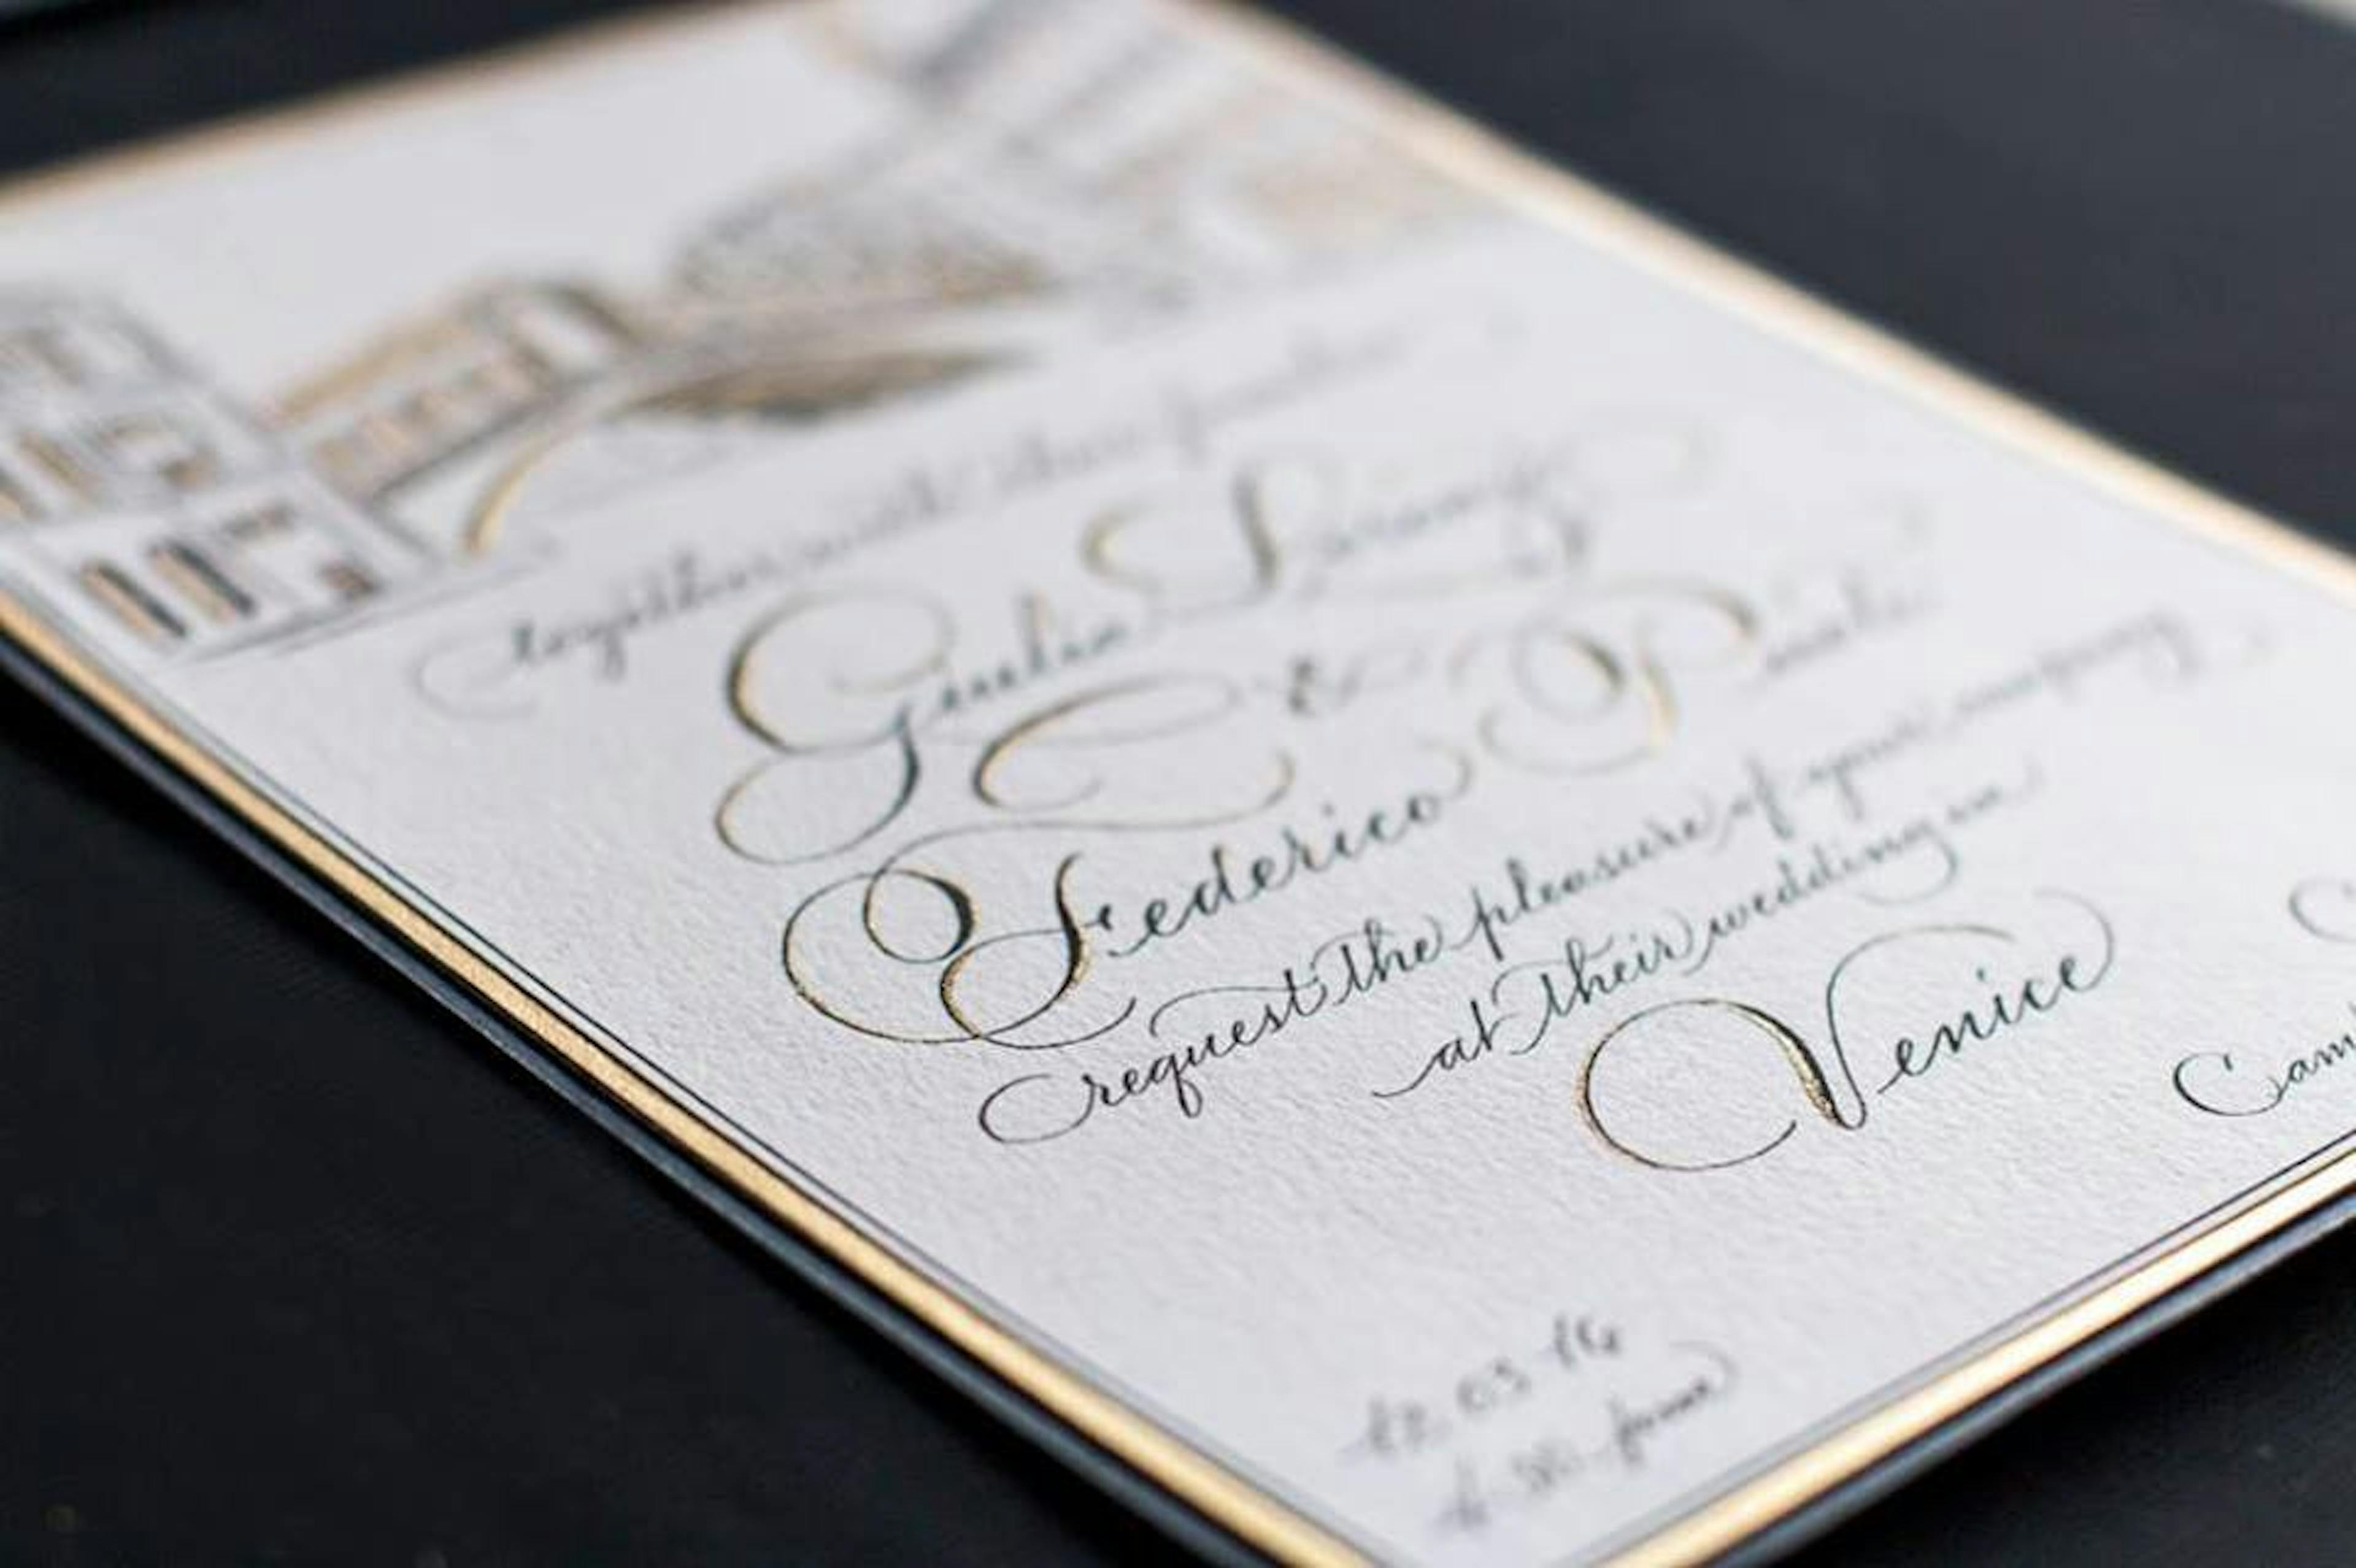 together with their families
Giulia
&
Federico
request the pleasure of your company
at their wedding in
Venice
03 16
pm